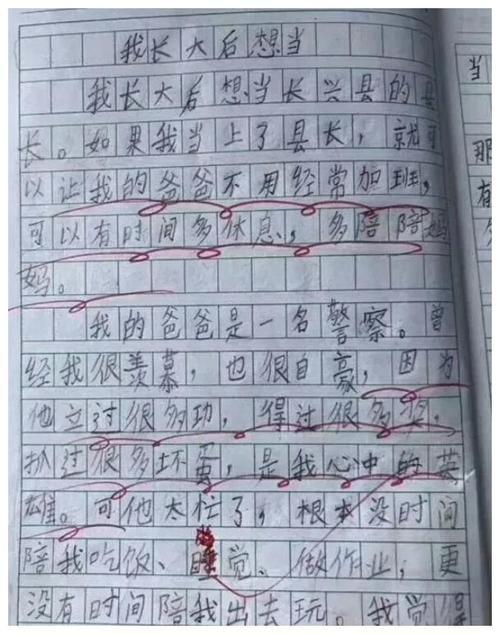 我长大后想当
我长大后想当长兴县的县
长。如果我当上了县长，就可
以让我的爸爸不用经常加班，
可以有时间多休息，多陪陪妈
妈。
我的爸爸是一名警察。曾
经我很羡慕，也很自豪，因为
他立过很多功，得过很多奖，
抓过很多坏蛋，是我心中的英
雄。可他太忙了，根本没时间
陪我吃饭、睡觉、做作业，更
没有时间陪我出去玩。我觉得
当
那
有